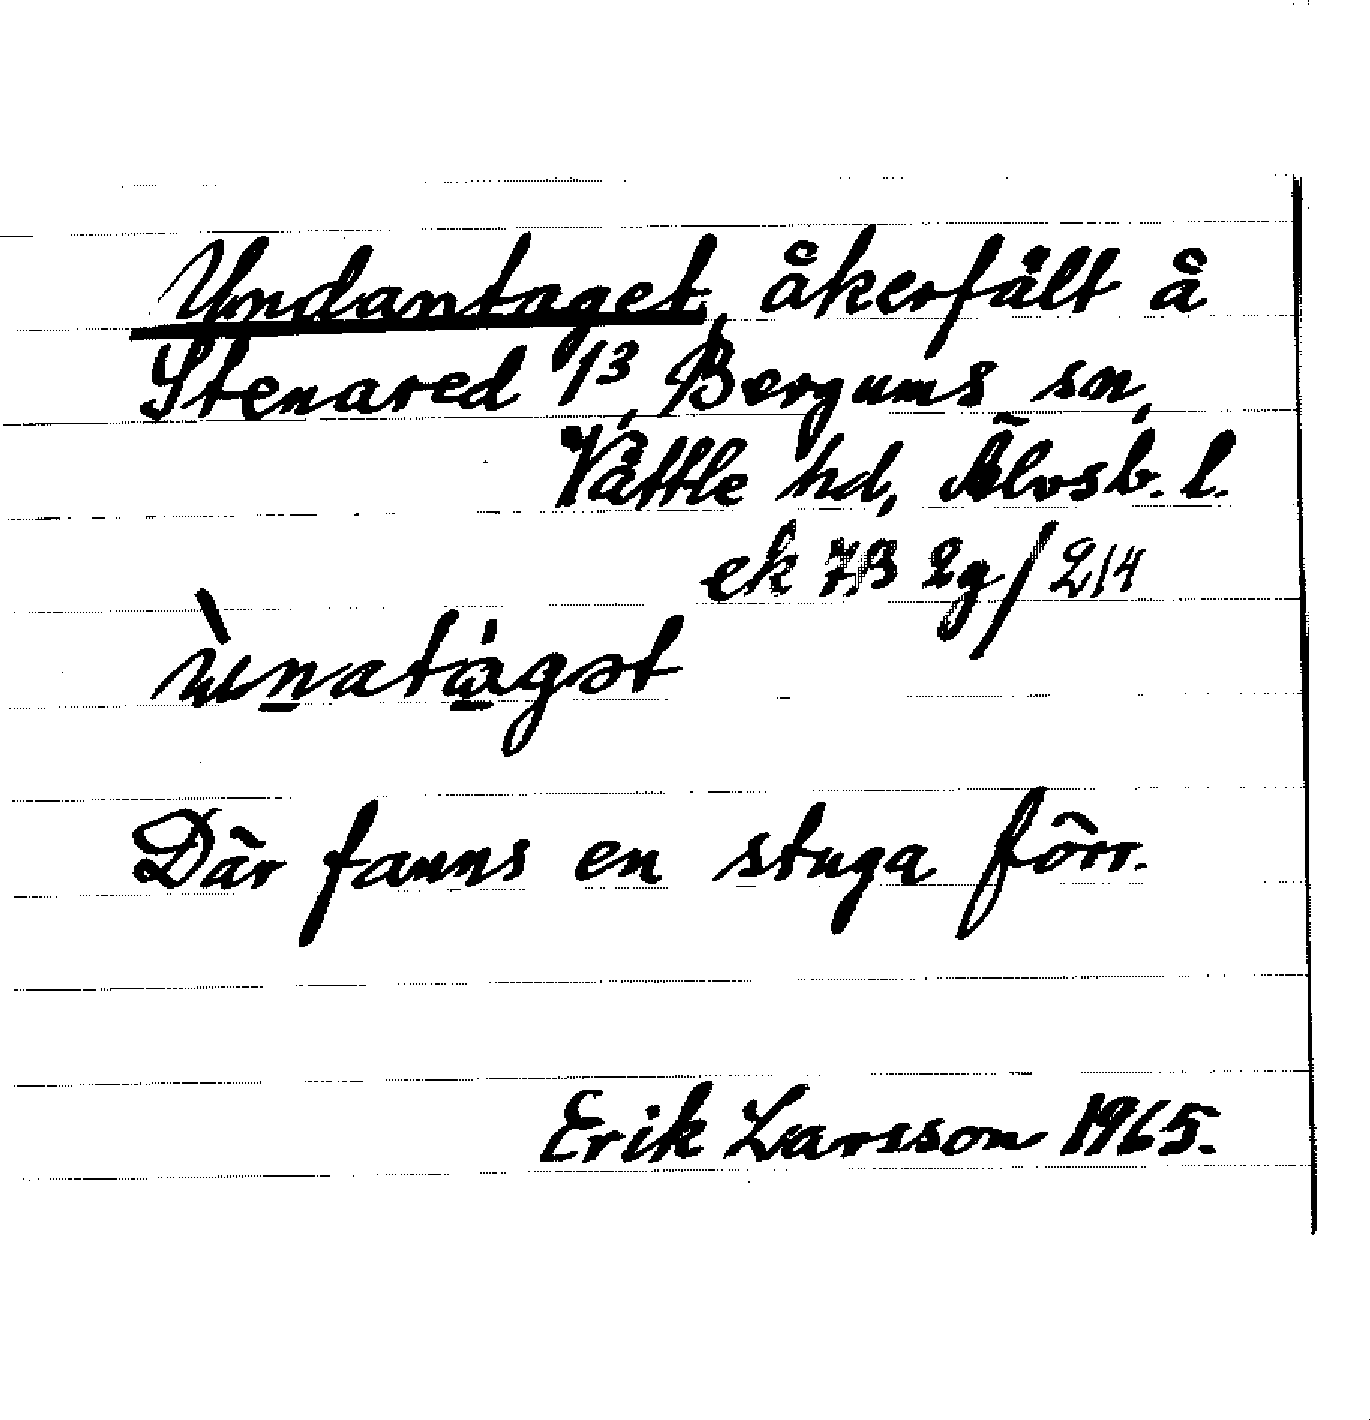 Undantaget, åkerfält å
Stenared 1/3, Bergums sn,
Vättle hd, Älvsb. l.
ek 7B 2g/214
ùnatàgət
Där fanns en stuga förr.
Erik Larsson 1965.